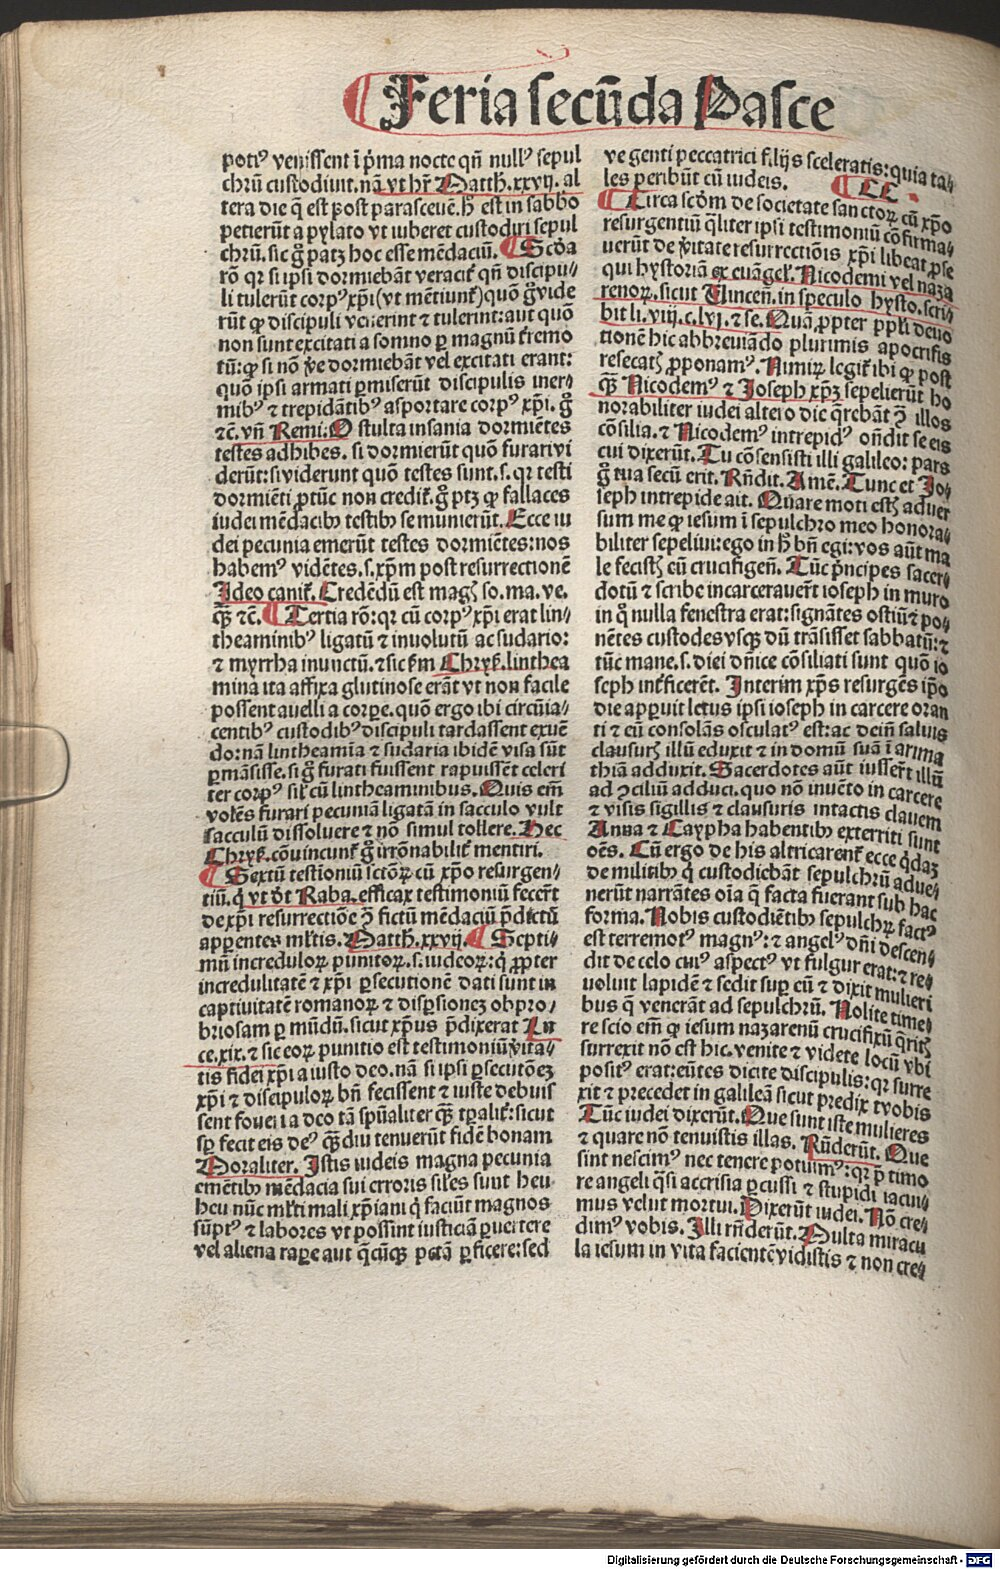 Feria secūda Pasce
potiꝰ venissent ī pͥma nocte qñ nullꝰ sepul
chrū custodiuit. nā vt hr̄ Matth. xxvij. al
tera die q̄ est post parasceuē. hͦ est in sabbo
petierūt a pylato vt iuberet custodiri sepul
chrū. sic gͦ patꝫ hoc esse mēdaciū. Scd̓a
rō qꝛ si ipsi dormiebāt veracit̓ qñ discipu⸗
li tulerūt corpꝰ xp̄i (vt mētiunt̓) quō gͦ vide
rūt ꝙ discipuli venerint ⁊ tulerint: aut quō
non sunt excitati a somno ꝑ magnū t̓remo
tū: ꝙ si nō ve̓ dormiebāt vel excitati erant:
quō ipsi armati ꝑmiserūt discipulis iner⸗
mibꝰ ⁊ trepidātibꝰ asportare corpꝰ xp̄i. gͦ
⁊c̄. vñ Remi. O stulta insania dormiētes
testes adhibes. si dormierūt quō furari vi
derūt: si viderunt quō testes sunt. s. qꝛ testi
dormiēti ꝓtūc non credit̓. gͦ ptꝫ ꝙ fallaces
iudei mēdacibꝰ testibꝰ se munierūt. Ecce iu
dei pecunia emerūt testes dormiētes: nos
habemꝰ vidētes. s. xp̄m post resurrectionē
Ideo canit̓. Credēdū est magꝭ so. ma. ve.
ꝙ̄ ⁊c̄. Tertia rō: qꝛ cū corpꝰ xp̄i erat lin⸗
theaminibꝰ ligatū ⁊ inuolutū ac sudario:
⁊ myrrha inunctū. ⁊ sic ẜm Chryẜ. linthea
mina ita affixa glutinose erāt vt non facile
possent auelli a corꝑe. quō ergo ibi circūia⸗
centibꝰ custodibꝰ discipuli tardassent exuē
do: nā lintheamīa ⁊ sudaria ibidē visa sūt
ꝑmāsisse. si gͦ furati fuissent rapuissēt celeri
ter corpꝰ sil̓ cū lintheaminibus. Quis em̄
volēs furari pecuniā ligatā in sacculo vult
sacculū dissoluere ⁊ nō simul tollere. Hec
Chryẜ. cōuincunt̓ gͦ irrōnabilit̓ mentiri.
Sextū testioniū sctōꝝ cū xp̄o resurgen⸗
tiū. qͥ vt dt̓ Raba. efficax testimoniū fecer̄t
de xp̄i resurrectiōe ꝯ̄ fictū mēdaciū p̄dictū
apꝑentes ml̓tis. Matth. xxvij. Septi⸗
mū incredulorꝝ punitorꝝ. s. iudeorꝝ: qͥ ꝓpter
incredulitatē ⁊ xp̄i ꝑsecutionē dati sunt in
captiuitatē romanoꝝ ⁊ disꝑsionez obpro⸗
briosam ꝑ mūdū. sicut xp̄us p̄dixerat Lu
ce. xix. ⁊ sic eoꝝ punitio est testimoniū v̓ita⸗
tis fidei xp̄i a iusto deo. nā si ipsi ꝑsecutōez
xp̄i ⁊ discipuloꝝ bn̄ fecissent ⁊ iuste debuis
sent foueri a deo tā spūaliter qꝙ̄ tꝑalit̓: sicut
sꝑ fecit eis deꝰ qꝙ̄diu tenuerūt fidē bonam
Moraliter. Istis iudeis magna pecunia
emētibꝰ mēdacia sui erroris sil̓es sunt heu
heu nūc ml̓ti mali xp̄iani qͥ faciūt magnos
sūptꝰ ⁊ labores vt possint iusticiā ꝑuertere
vel aliena raꝑe aut qͥcūqꝫ pctā ꝑficere: sed
ve genti peccatrici filijs sceleratis: quia ta⸗
les peribūt cū iudeis. CC
Circa scd̓m de societate sanctoꝝ cū xp̄o
resurgentiū qͣliter ipsi testimoniū cōfirma⸗
uerūt de v̓itate resurrectiōis xp̄i libeat ꝓse
qui hystoriā ex euāgel̓. Nicodemi vel naza
renoꝝ. sicut Vincen̄. in speculo hysto. scri⸗
bit li. viij. c. lvj. ⁊ se. Quā ꝓpter ppl̓i deuo
tionē hic abbreuiādo plurimis apocrifis
resecatꝭ ꝓponamꝰ. Nimiꝝ legit̓ ibi ꝙ post
qꝙ̄ Nicodemꝰ ⁊ Joseph xp̄ꝫ sepelierūt ho
norabiliter iudei altero die q̄rebāt ꝯ̄ illos
cōsilia. ⁊ Nicodemꝰ intrepidꝰ oñdit se eis
cui dixerūt. Tu cōsensisti illi galileo: pars
gͦ tua secū erit. Rn̄dit. Amē. Tunc et Jo⸗
seph intrepide ait. Quare moti estꝭ aduer
sum me ꝙ iesum ī sepulchro meo honora⸗
biliter sepeliui: ego in hͦ bn̄ egi: vos aūt ma
le fecistꝭ eū crucifigen̄. Tūc p̄ncipes sacer
dotū ⁊ scribe incarcerauer̄t ioseph in muro
in qͦ nulla fenestra erat: signātes ostiū ⁊ po⸗
nētes custodes vsqꝫ dū trāsisset sabbatū: ⁊
tūc mane. s. diei dn̄ice cōsiliati sunt quō io
seph int̓ficerēt. Interim xp̄s resurgēs ip̄o
die apꝑuit letus ipsi ioseph in carcere oran
ti ⁊ eū consolās osculatꝰ est: ac dein̄ saluis
clausurꝭ illū eduxit ⁊ in domū suā ī arima
thiā adduxit. Sacerdotes aūt iusser̄t illū
ad ꝯciliū adduci. quo nō inuēto in carcere
⁊ visis sigillis ⁊ clausuris intactis clauem
Anna ⁊ Caypha habentibꝰ exterriti sunt
oēs. Cū ergo de his altricarent̓ ecce qͥdaꝫ
de militibꝰ qͥ custodiebāt sepulchrū adue⸗
nerūt narrātes oīa q̄ facta fuerant sub hac
forma. Nobis custodiētibꝰ sepulchꝝ factꝰ
est terremotꝰ magnꝰ: ⁊ angelꝰ dn̄i descen
dit de celo cuiꝰ aspectꝰ vt fulgur erat: ⁊ re⸗
uoluit lapidē ⁊ sedit suꝑ eū ⁊ dixit mulieri
bus q̄ venerāt ad sepulchrū. Nolite time⸗
re scio em̄ ꝙ iesum nazarenū crucifixū q̄ritꝭ
surrexit nō est hic. venite ⁊ videte locū vbi
positꝰ erat: eūtes dicite discipulis: qꝛ surre
xit ⁊ precedet in galileā sicut predixit vobis
Tūc iudei dixerūt. Que sunt iste mulieres
⁊ quare nō tenuistis illas. Rn̄derūt. Que
sint nescimꝰ nec tenere potuimꝰ: qꝛ p̄ timo
re angeli qͣsi accrisia ꝑcussi ⁊ stupidi iacui⸗
mus velut mortui. Dixerūt iudei. Nō cre⸗
dimꝰ vobis. Illi rn̄derūt. Multa miracu
la iesum in vita facientē vidistis ⁊ non cre⸗
Digitalisierung gefördert durch die Deutsche Forschungsgemeinschaft - DFG